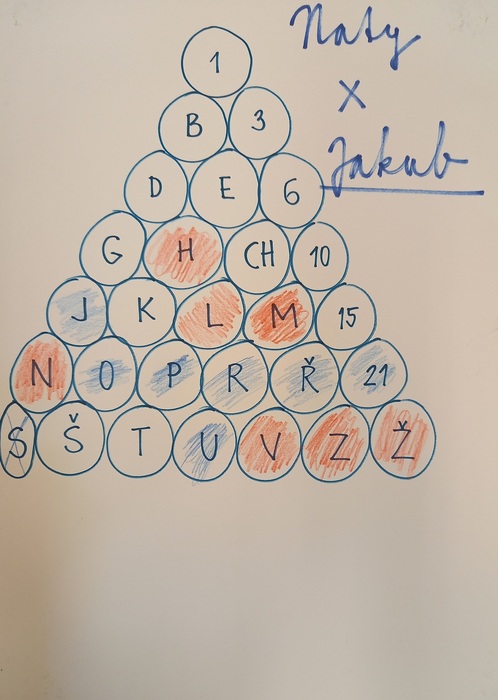 Naty
x
Jakub
1
B 3
D E 6
G H CH 10
J K L M 15
N O P R Ř 21
S Š T U V Z Ž